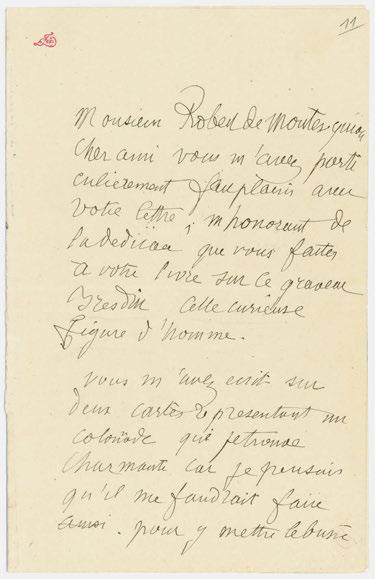 11
Monsieur Robert de Montesquiou
cher ami vous m'avez parti
culierement fau plaisir avec
votre lettre, m'honorant de
la dedicace que vous faites
a votre livre sur ce graveur
Bresdin cette curieuse
figure d'homme.
vous m'avez ecrit sur
deux cartes representant un
colonade que je trouve
charmante car je pensais
qu'il me faudrait faire
ainsi. pour y mettre le buste